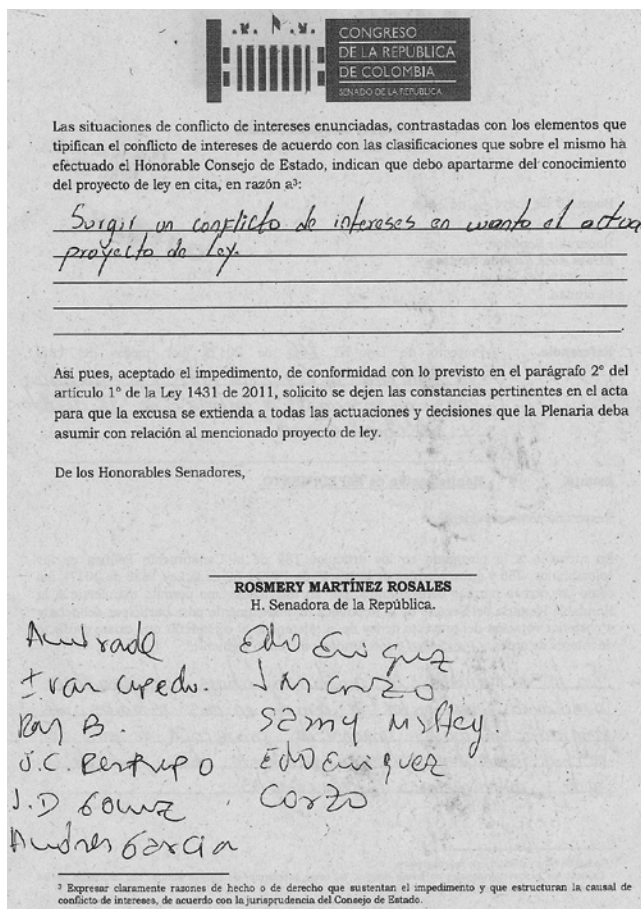 CONGRESO
DE LA REPÚBLICA
DE COLOMBIA
SENADO DE LA REPÚBLICA
Las situaciones de conflicto de intereses enunciadas, contrastadas con los elementos que
tipifican el conflicto de intereses de acuerdo con las clasificaciones que sobre el mismo ha
efectuado el Honorable Consejo de Estado, indican que debo apartarme del conocimiento
del proyecto de ley en cita, en razón a³:
Surgir un conflicto de intereses en cuanto el actua
proyecto de ley.
Así pues, aceptado el impedimento, de conformidad con lo previsto en el parágrafo 2º del
artículo 1º de la Ley 1431 de 2011, solicito se dejen las constancias pertinentes en el acta
para que la excusa se extienda a todas las actuaciones y decisiones que la Plenaria deba
asumir con relación al mencionado proyecto de ley.
De los Honorables Senadores,
ROSMERY MARTÍNEZ ROSALES
H. Senadora de la República.
Andrade Edo Enriquez
Ivan cepeda. J M Corzo
Roy B. Samy
J.C. Restrepo Edo Enriquez
J.D Gomez Corzo
Andres Garcia
³ Expresar claramente razones de hecho o de derecho que sustentan el impedimento y que estructuran la causal de
conflicto de intereses, de acuerdo con la jurisprudencia del Consejo de Estado.